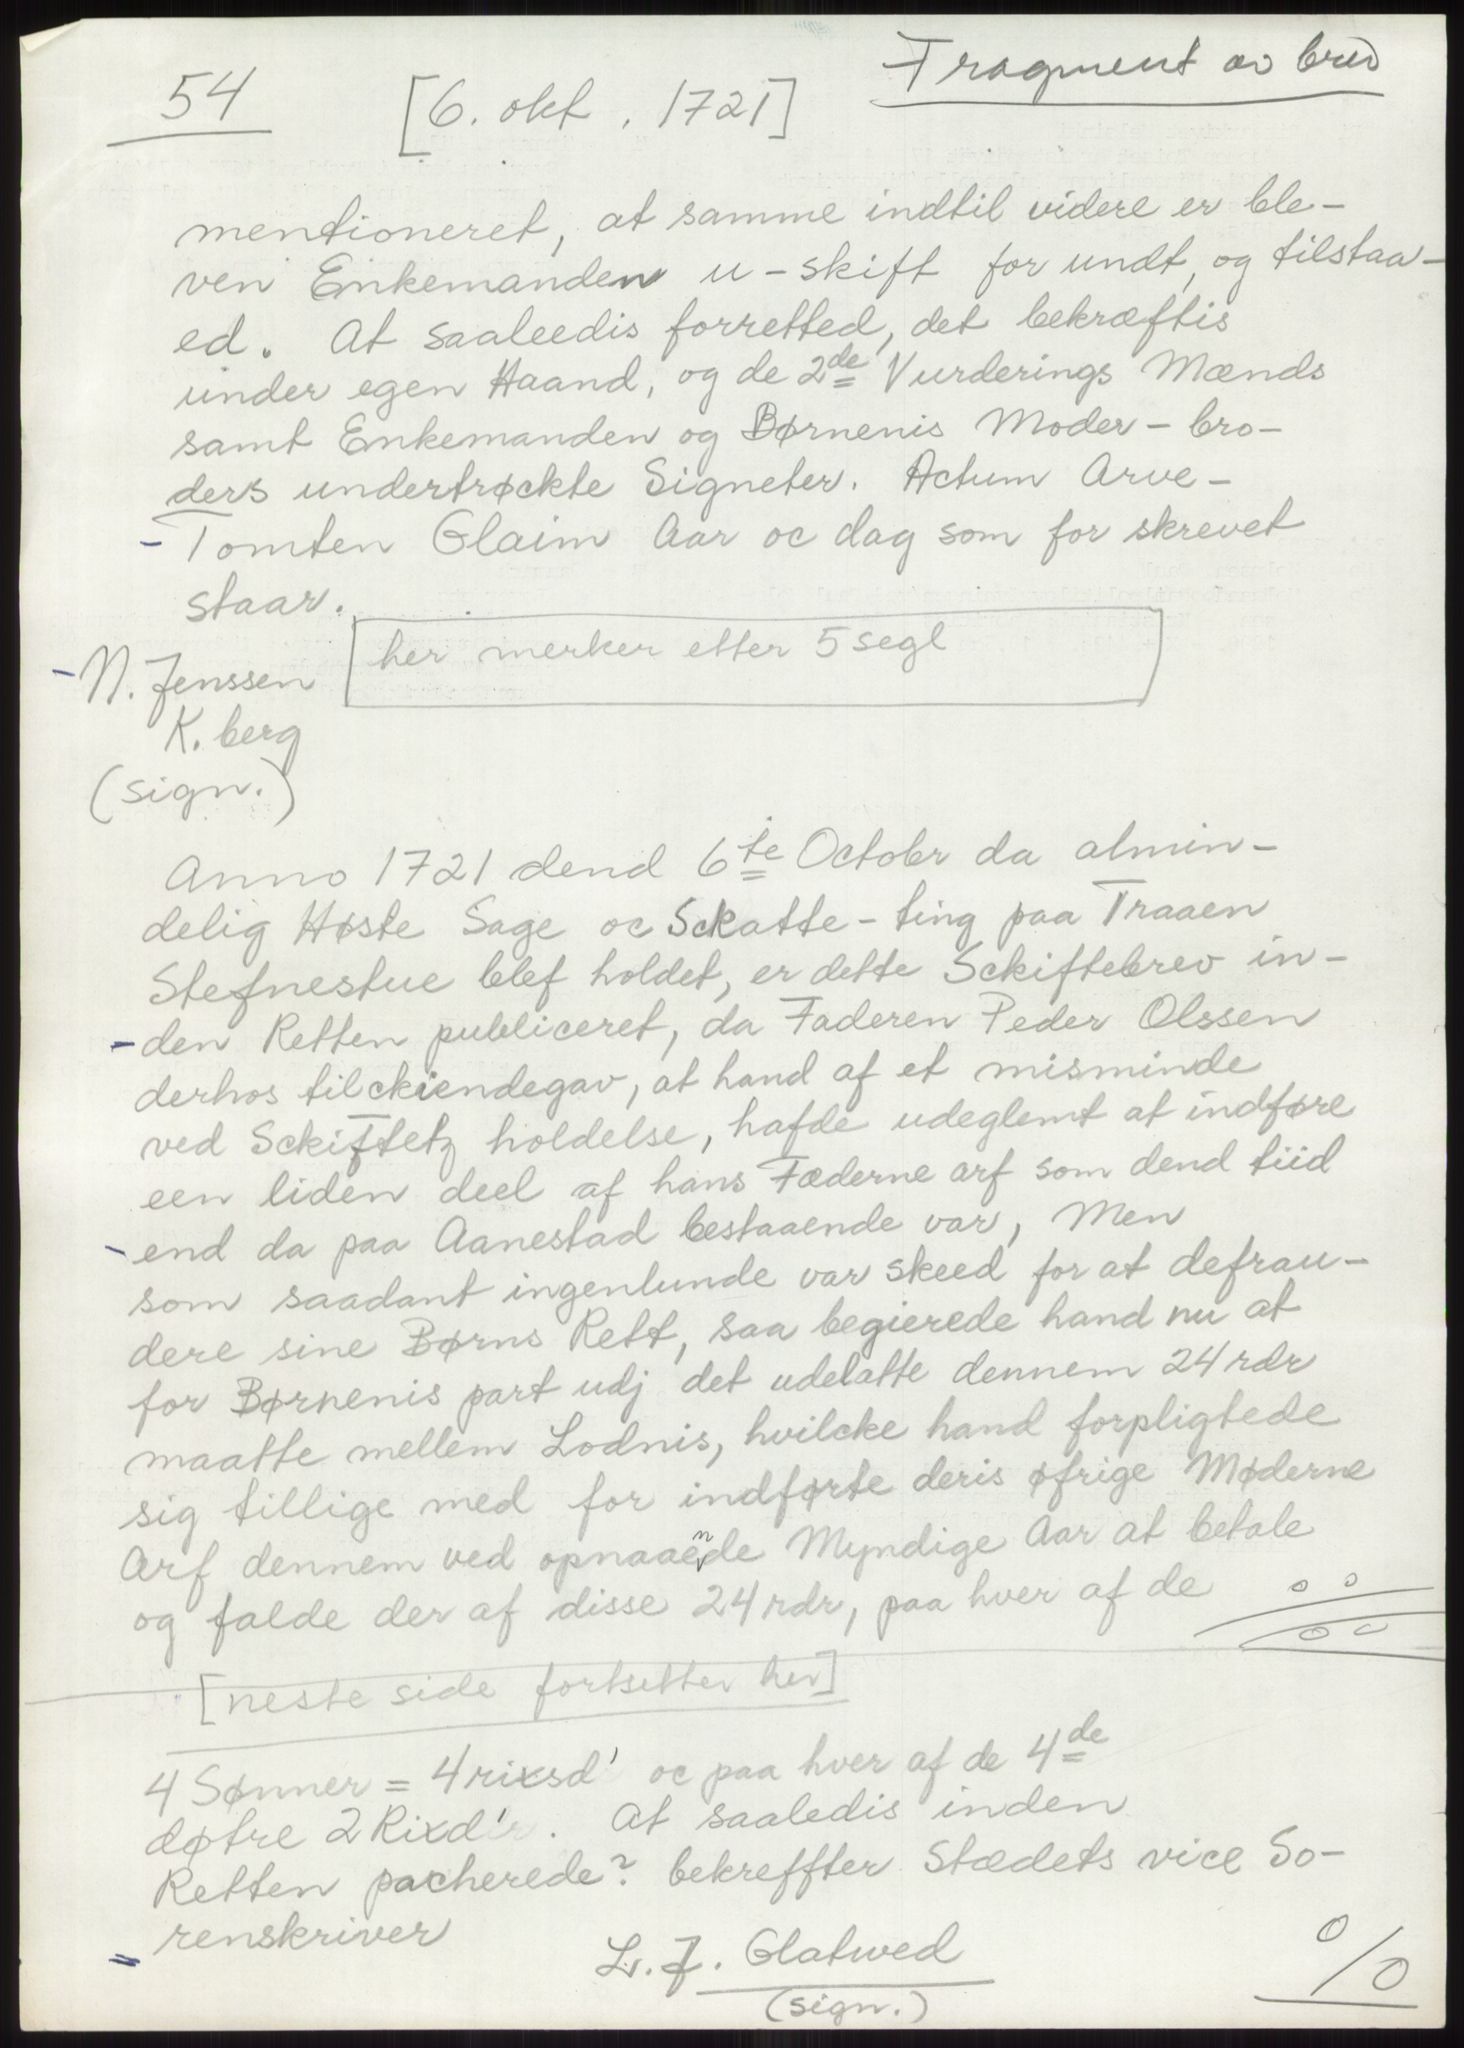 54
[6. okt. 1721]
Fragment av brev
mentioneret, at samme indtil videre er ble-
ven Enkemanden u-skift for undt, og tilstaa-
ed. At saaleedis forretted, det bekræftis
under egen Haand, og de 2de Vurderings Mænds
samt Enkemanden og Børnenis Moder-bro-
ders undertrøckte Signeter. Actum Arve-
- Tomten Glaim Aar oc dag som for skrevet
staar.
- N. Jenssen
[her merker etter 5 segl]
K. berg
(sign.)
Anno 1721 dend 6te Octobr da almin-
delig Høste Sage oc Sckatte-ting paa Traaen
Stefnestue blef holdet, er dette Sckiftebrev in-
- den Retten publiceret, da Faderen Peder Olssen
derhos tilckiendegav, at hand af et misminde
ved Sckiftetz holdelse, hafde udeglemt at indføre
een liden deel af hans Fæderne arf som dend tiid
- end da paa Aanestad bestaaende var, Men
som saadant ingenlunde var skeed for at defrau-
dere sine Børns Rett, saa begierede hand nu at
for Børnenis part udj det udelatte dennem 24 rdr
maatte mellem Lodnis, hvilcke hand forpligtede
sig tillige med for indførte deris øfrige Møderne
Arf dennem ved opnaaende Myndige Aar at betale
og falde der af disse 24 rdr, paa hver af de
[neste side fortsetter her]
4 Sønner = 4 rixsd' oc paa hver af de 4de
døtre 2 Rixd'r. At saaledis inden
Retten pacherede? bekreffter Stædets vice So-
= renskriver
L. J. Glatved
(sign.)
%